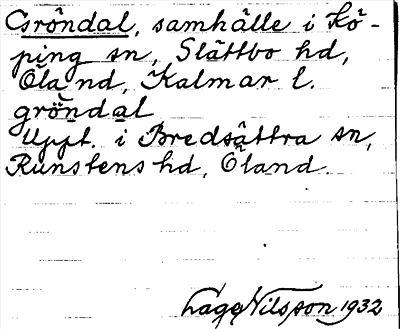 Gröndal, samhälle i Kö-
ping sn, Slättbo hd,
Öland, Kalmar l.
gröndal
Uppt. i Bredsättra sn,
Runstens hd, Öland.
Lage Nilsson 1932